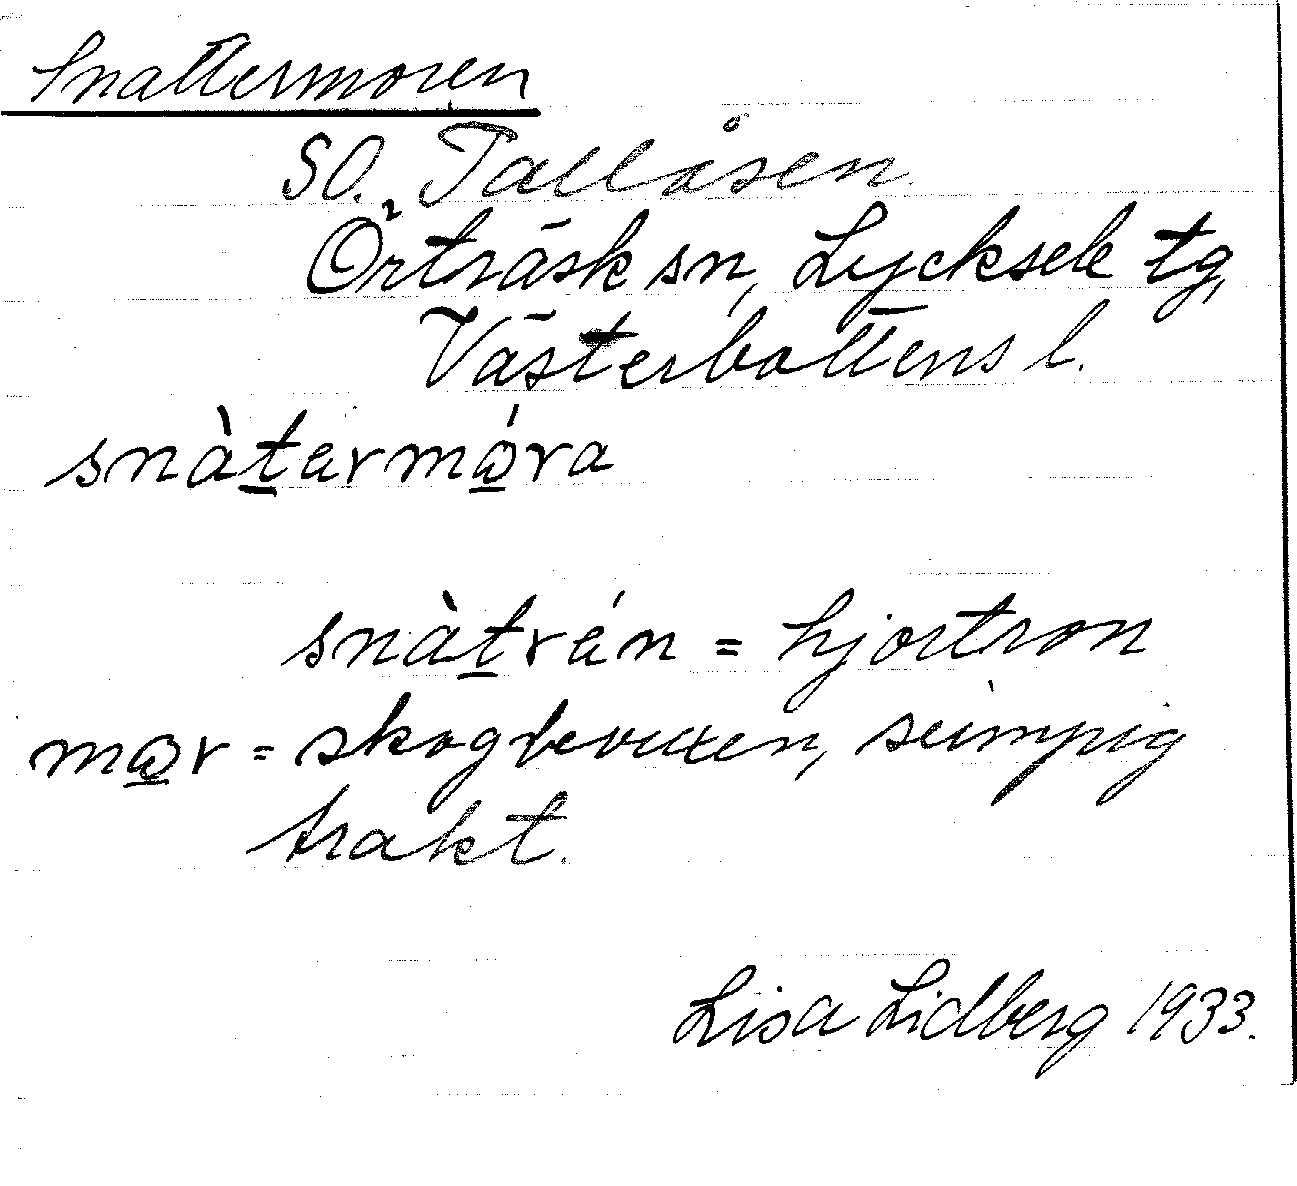 Snattermoren
SO. Tallåsen
Örträsk sn, Lycksele tg,
Västerbottens l.
snàt̲ermo̲̓ra
snàt̲rén = hjortron
mo̲r = skogbevuxen, sumpig
trakt.
Lisa Lidberg 1933.